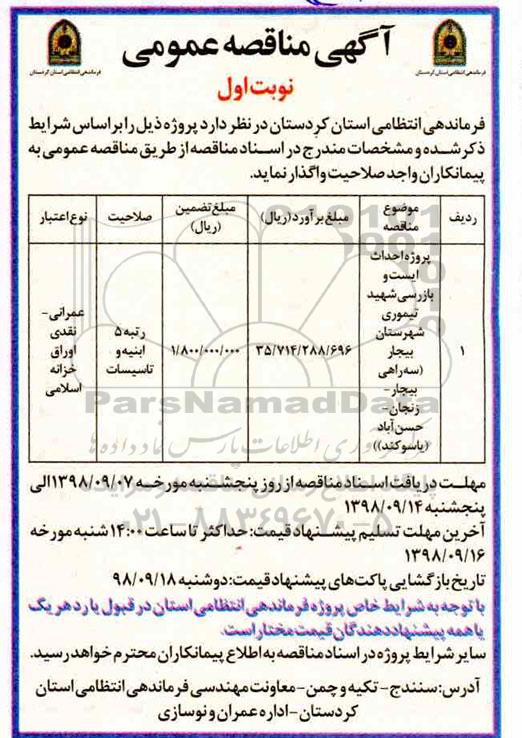 آگهی مناقصه عمومی
نوبت اول
فرماندهی انتظامی استان کردستان
فرماندهی انتظامی استان کردستان
فرماندهی انتظامی استان کردستان در نظر دارد پروژه ذیل را بر اساس شرایط
ذکر شده و مشخصات مندرج در اسناد مناقصه از طریق مناقصه عمومی به
پیمانکاران واجد صلاحیت واگذار نماید.
ردیف
موضوع مناقصه
مبلغ برآورد (ریال)
مبلغ تضمین (ریال)
صلاحیت
نوع اعتبار
۱
پروژه احداث
ایست و
بازرسی شهید
تیموری
شهرستان
بیجار
(سه راهی
بیجار -
زنجان -
حسن آباد
(یاسوکند))
۳۵/۷۱۴/۲۸۸/۶۹۶
۱/۸۰۰/۰۰۰/۰۰۰
رتبه ۵
ابنیه و
تاسیسات
عمرانی -
نقدی
اوراق
خزانه
اسلامی
ParsNamadData
۰۲۱-۸۸۳۴۹۶۷۰-۵
مهلت دریافت اسناد مناقصه از روز پنجشنبه مورخه ۱۳۹۸/۰۹/۰۷ الی
پنجشنبه ۱۳۹۸/۰۹/۱۴
آخرین مهلت تسلیم پیشنهاد قیمت: حداکثر تا ساعت ۱۴:۰۰ شنبه مورخه
۱۳۹۸/۰۹/۱۶
تاریخ بازگشایی پاکت های پیشنهاد قیمت: دوشنبه ۹۸/۰۹/۱۸
با توجه به شرایط خاص پروژه فرماندهی انتظامی استان در قبول یا رد هر یک
یا همه پیشنهاددهندگان قیمت مختار است.
سایر شرایط پروژه در اسناد مناقصه به اطلاع پیمانکاران محترم خواهد رسید.
آدرس: سنندج - تکیه و چمن - معاونت مهندسی فرماندهی انتظامی استان
کردستان - اداره عمران و نوسازی